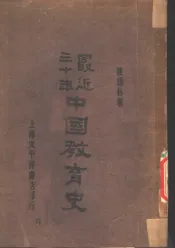 陳翊林著
最近
三十年
中國教育史
上海太平洋書店印行